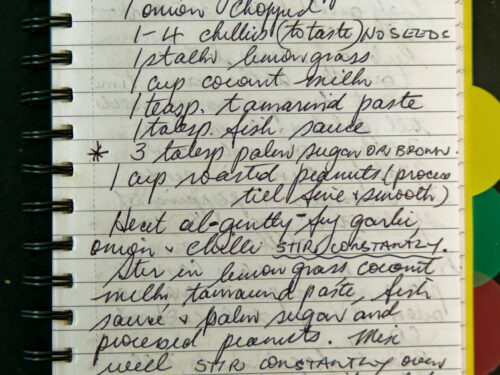 1 onion chopped.
1-4 chillies (to taste) NO SEEDS
1 stalk lemongrass
1 cup coconut milk
1 teasp. tamarind paste
1 tabesp. fish sauce
* 3 tabesp palm sugar OR BROWN.
1 cup roasted peanuts (process
till fine & smooth)
Heat oil-gently-fry garlic,
onion & chilli STIR CONSTANTLY.
Stir in lemongrass coconut
milk, tamarind paste, fish
sauce & palm sugar and
processed peanuts. Mix
well STIR CONSTANTLY over